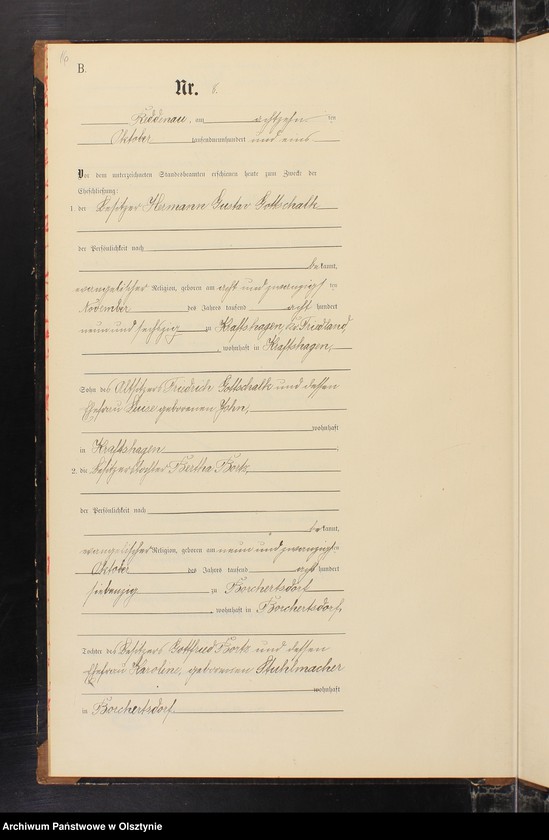 B.
Nr. 8.
Kiddenau, am achtzehn ten
Oktober tausendneunhundert und eins
Vor dem unterzeichneten Standesbeamten erschienen heute zum Zwecke der
Eheschließung:
1. der Besitzer Hermann Gustav Gottschalk
der Persönlichkeit nach
be kannt,
evangelischer Religion, geboren am acht und zwanzigst en
November des Jahres tausend acht hundert
neun und sechszig zu Kraftshagen, Kr. Friedland
, wohnhaft in Kraftshagen,
Sohn des Altsitzers Friedrich Gottschalk und dessen
Ehefrau Luise geborenen John,
wohnhaft
in Kraftshagen.
2. die Besitzerstochter Bertha Bortz,
der Persönlichkeit nach
be kannt,
evangelischer Religion, geboren am neun und zwanzigsten
Oktober des Jahres tausend acht hundert
siebenzig zu Borchertsdorf
, wohnhaft in Borchertsdorf,
Tochter des Besitzers Gottfried Bortz und dessen
Ehefrau Karoline, geborenen Stuhlmacher
wohnhaft
in Borchertsdorf.
Archiwum Państwowe w Olsztynie